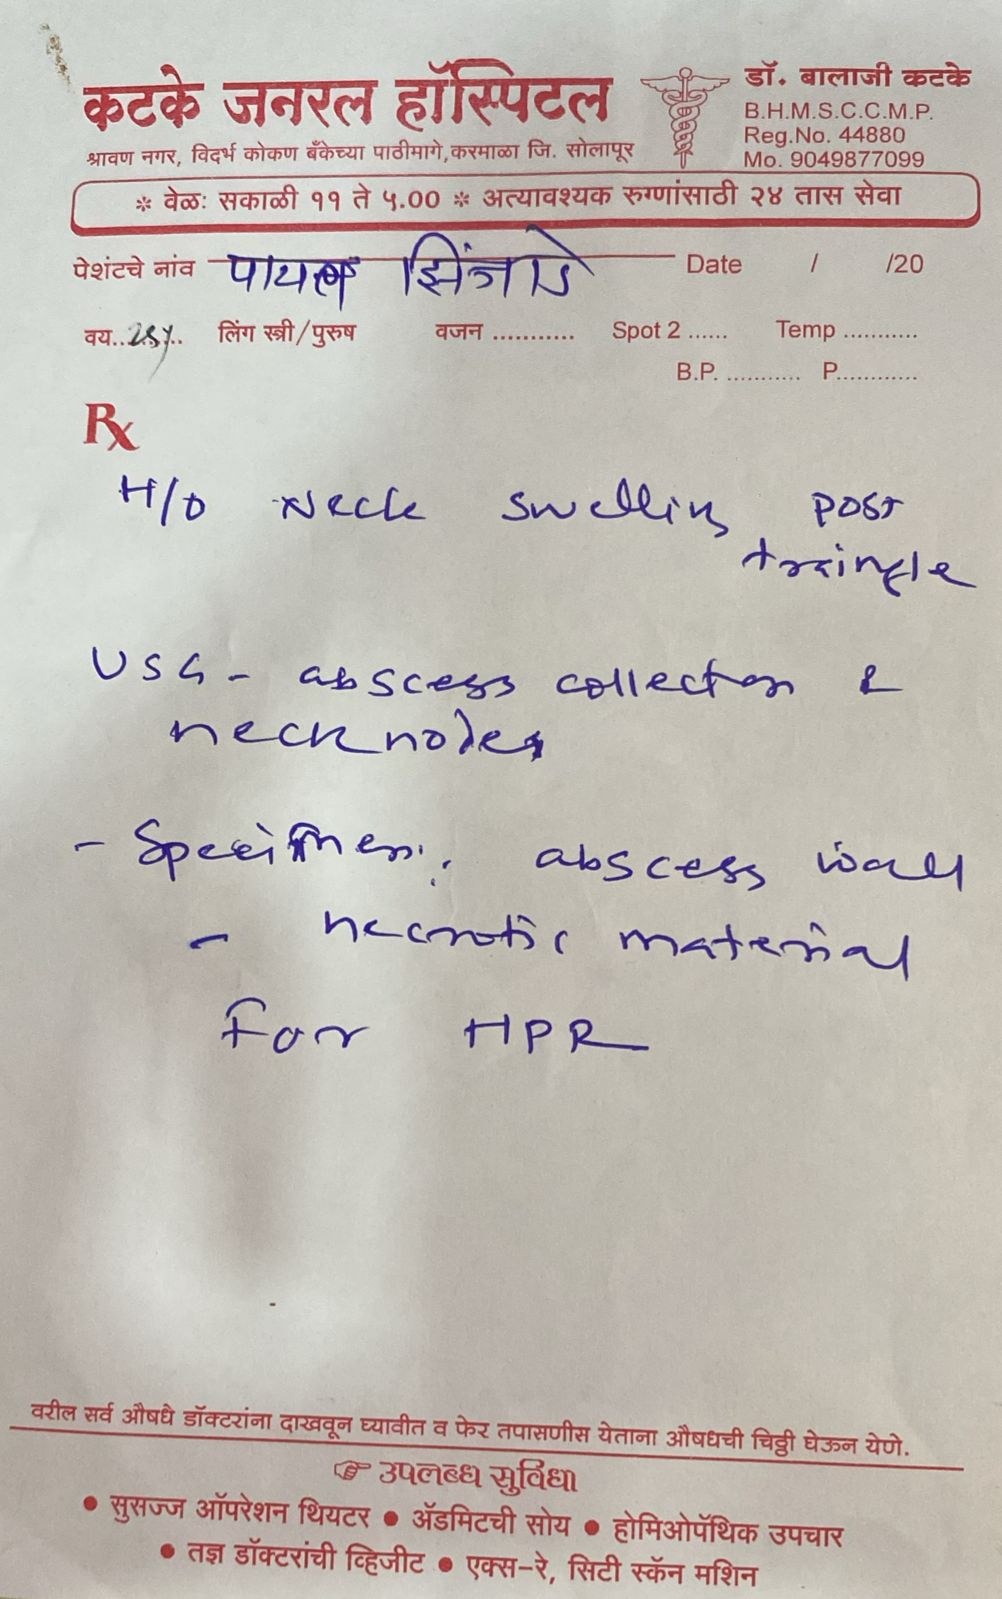 कटके जनरल हॉस्पिटल
श्रावण नगर, विदर्भ कोकण बँकेच्या पाठीमागे,करमाळा जि. सोलापूर
डॉ. बालाजी कटके
B.H.M.S.C.C.M.P.
Reg.No. 44880
Mo. 9049877099
* वेळः सकाळी ११ ते ५.०० * अत्यावश्यक रुग्णांसाठी २४ तास सेवा
पेशंटचे नांव पायल झिंजाडे Date / /20
वय..25y.. लिंग स्त्री/पुरुष वजन ........... Spot 2 ...... Temp ...........
B.P. ........... P............
Rx
H/O Neck swelling post
traingle
USG - abscess collection &
neck nodes
- Specimen: abscess wall
- necrotic material
for HPR
वरील सर्व औषधे डॉक्टरांना दाखवून घ्यावीत व फेर तपासणीस येताना औषधची चिठ्ठी घेऊन येणे.
☞ उपलब्ध सुविधा
● सुसज्ज ऑपरेशन थियटर ● ॲडमिटची सोय ● होमिओपॅथिक उपचार
● तज्ञ डॉक्टरांची व्हिजीट ● एक्स-रे, सिटी स्कॅन मशिन